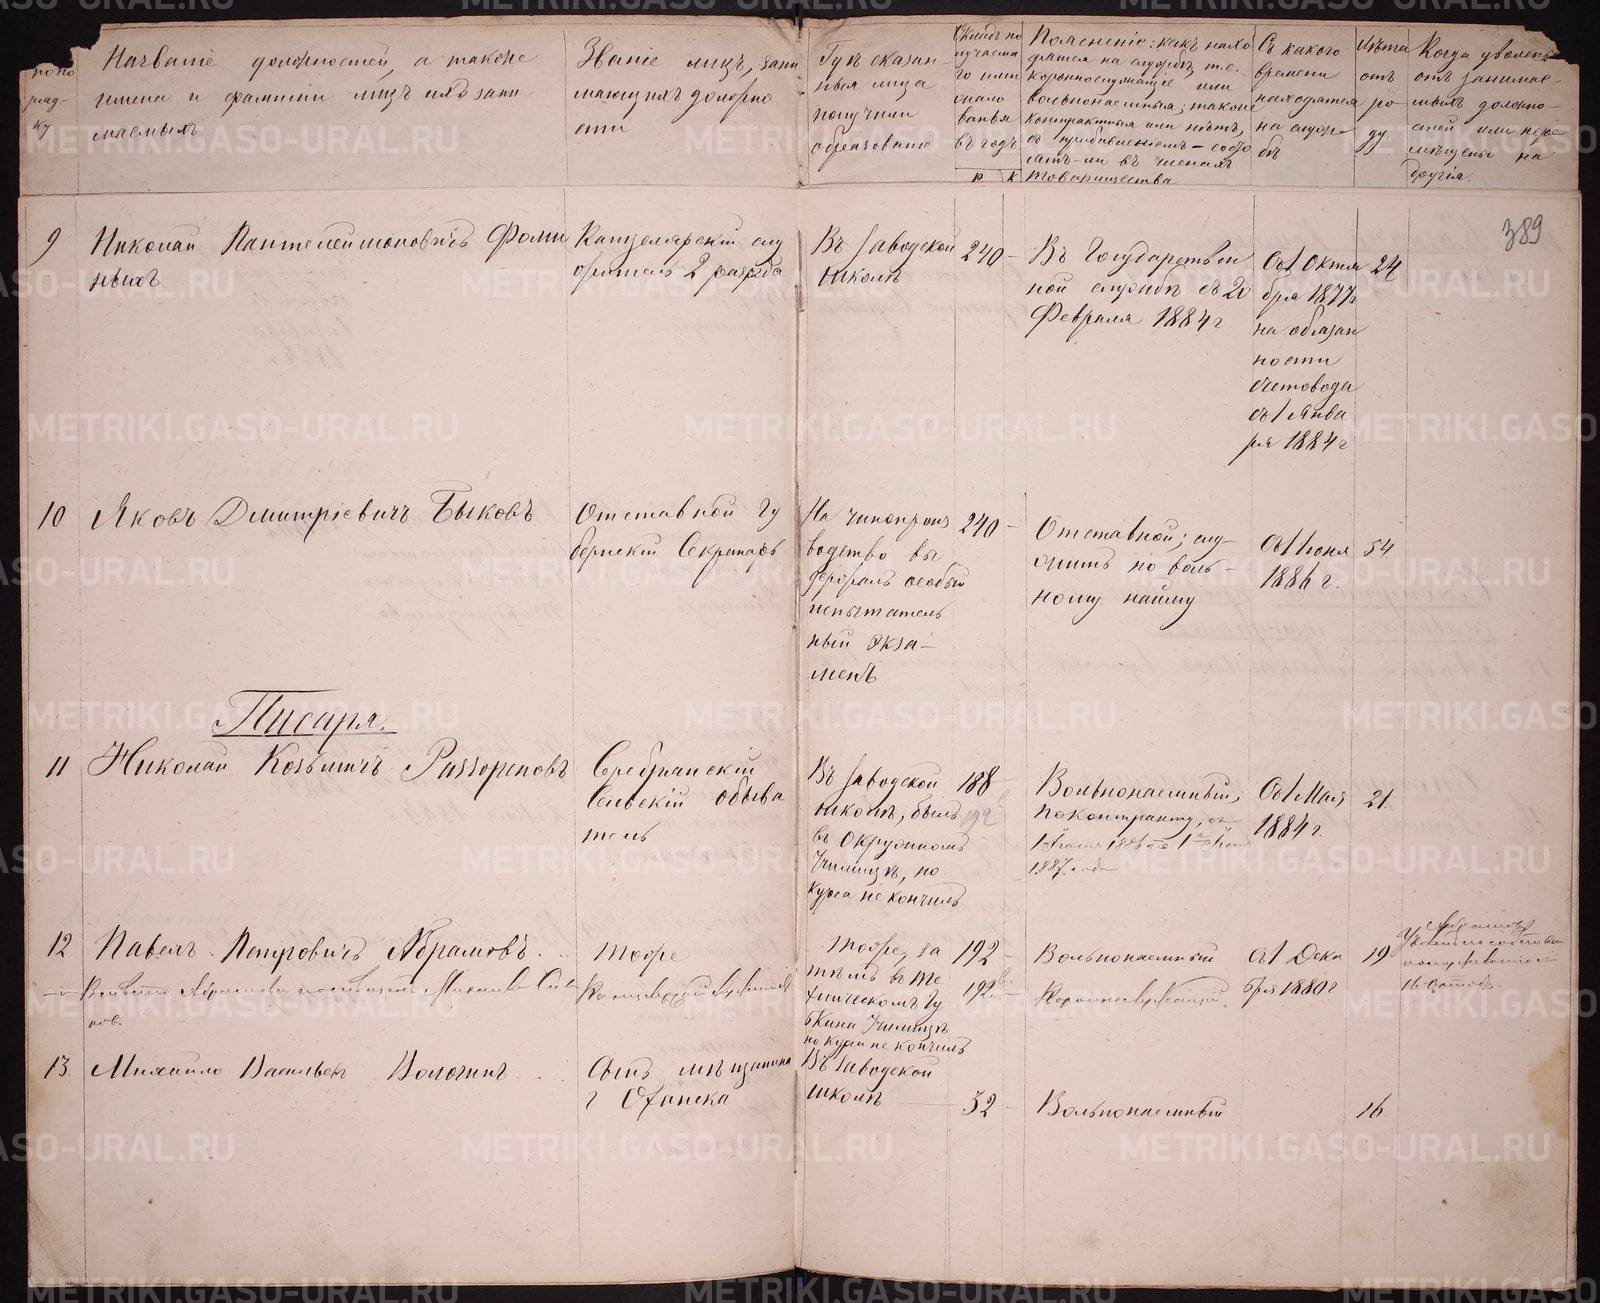 Названіе должностей, а также
имена и фамиліи лицъ ихъ зани
маемыхъ
Званіе лицъ, зани
мающихъ должно
сти
Гдѣ сказан-
ныя лица
получили
образованіе
Пояснение: какъ нахо
дятся на службѣ, т.е.
Короннослужащіе или
вольнонаемныя; также
контрактныя или нѣтъ,
съ прибавленіемъ – состо
ятъ-ли въ членахъ
товарищества
Съ какого
времени
находятся
на служ-
бѣ
Лѣта
отъ
ро
ду
Когда уволены
отъ занимае-
мыхъ должно-
стей или пере
мѣщены на
другія.
по по
ряд-
ку
въ годъ
р к
389
9 Николай Пантелеймоновичъ Фоми
ныхъ
Канцелярскій слу
житель 2 разряда
Въ Заводской
школѣ
240 –
Въ Государствен
ной службѣ съ 20
Февраля 1884 г
Съ 1 Октя
бря 1877 г
на обязан
ности
счетовода
съ 1 Янва
ря 1884 г
24
10 Яковъ Дмитріевичъ Быковъ
Отставной Гу
бернскій Секретарь
На чинопроиз
водство вы
держалъ особый
испытатель
ный экза-
менъ
240 –
Отставной; слу-
житъ по воль-
ному найму
Съ 1 Іюня
1886 г.
54
Писаря.
11 Николай Козьмичъ Разсореновъ
Серебрянскій
Сельскій обыва
тель
Въ Заводской
школѣ, былъ
въ Окружномъ
Училищѣ, но
курса не кончилъ
188 –
192
Вольнонаемный;
по контракту, съ
1887 года
Съ 1 Мая
1884 г.
21
12 Павелъ Петровичъ Абрамовъ
тоже
тоже, за
тѣмъ въ Те
хническомъ Гу
бкина Училищѣ
но курса не кончилъ
192 –
192
Вольнонаемный
Короннослужащій.
Съ 1 Дека
бря 1880 г
19
Абрамовъ
Вмѣсто Абрамова
Канцелярскій служитель
13 Михаило Васильев Вологинъ
Сынъ мѣщанина
г Оханска
Въ Заводской
школѣ
52 –
Вольнонаемный
16
METRIKI.GASO-URAL.RU